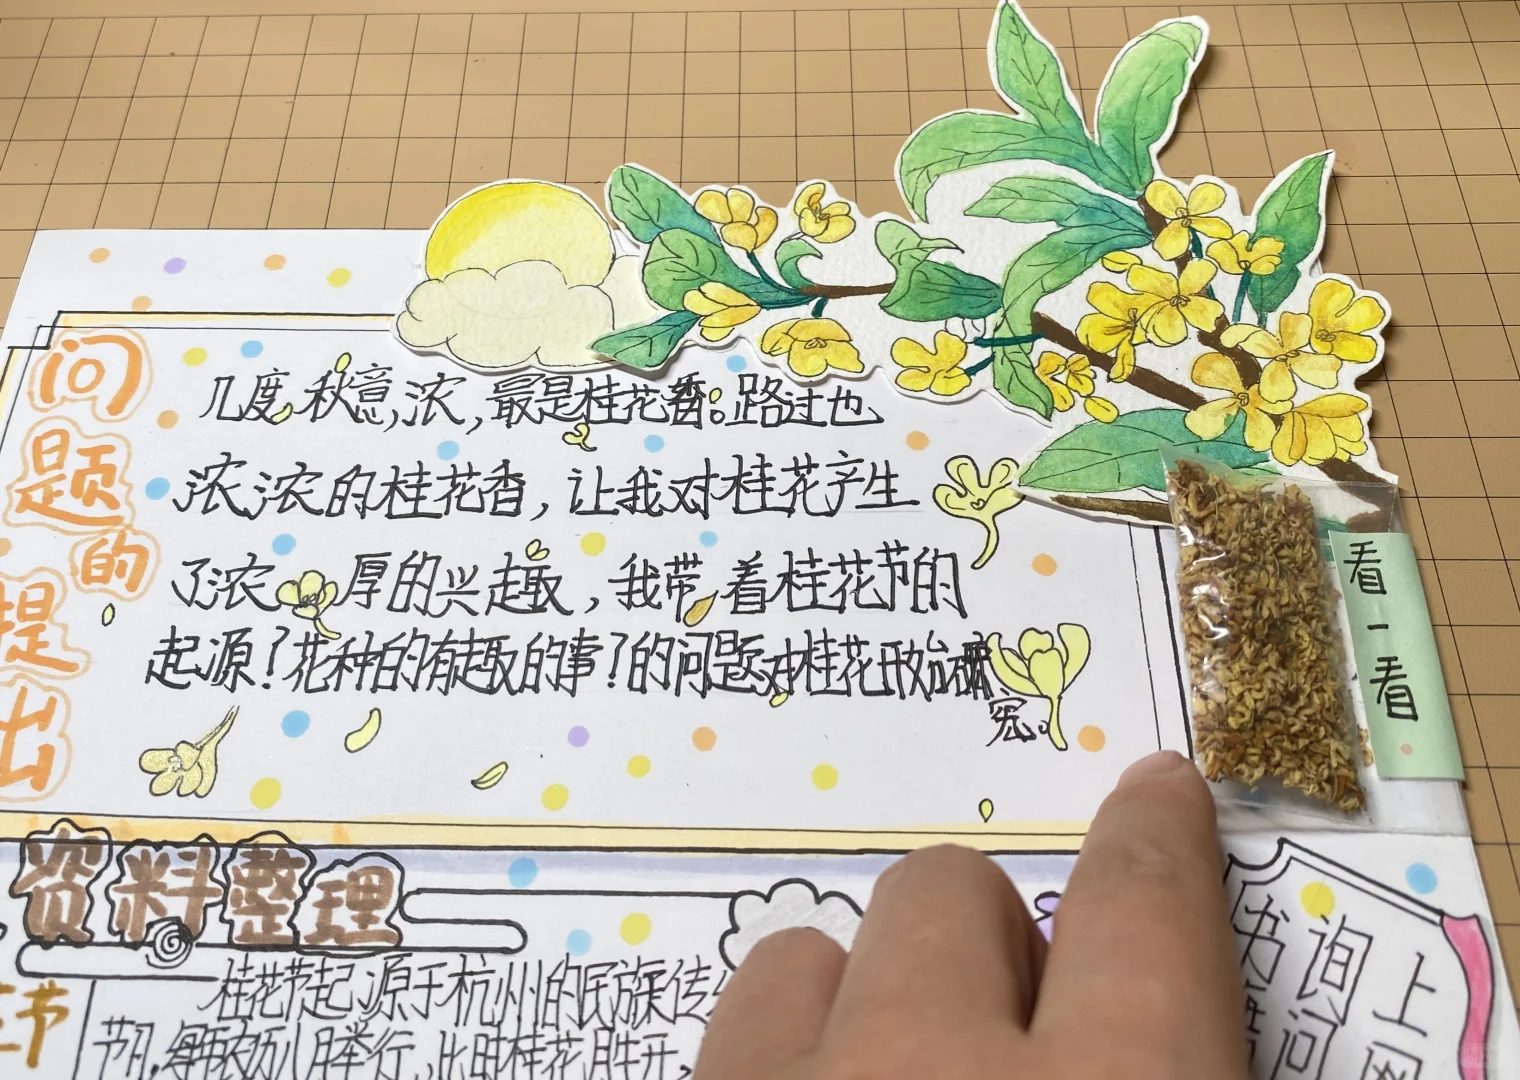 问题的提出
几度秋意浓,最是桂花香。路过也
浓浓的桂花香,让我对桂花产生
了浓厚的兴趣,我带着桂花节的
起源?花种的有趣的事?的问题对桂花开始研
究。
看一看
资料整理
桂花节起源于杭州的民族传
节日,每年农历八月举行,此时桂花盛开,
节
书
询问
上网